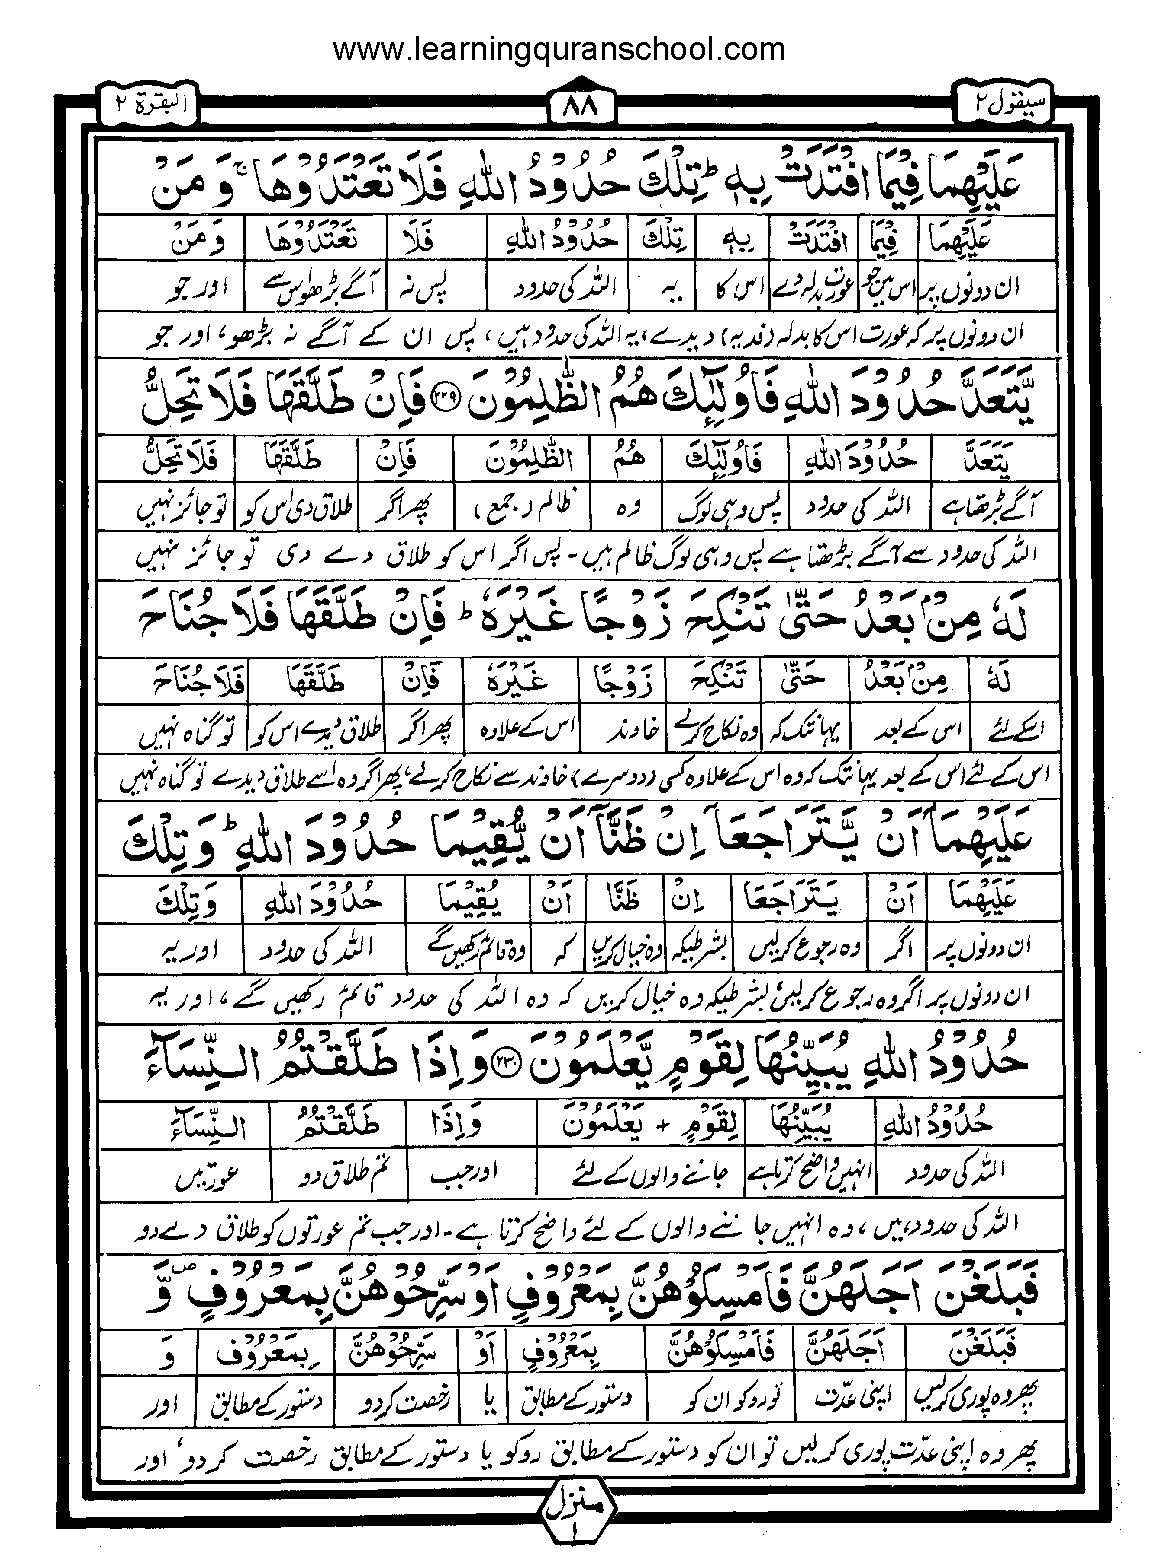 www.learningquranschool.com
سیقول ۲
۸۸
البقرة ۲
عَلَيْهِمَا فِيْمَا افْتَدَتْ بِهٖ ؕ تِلْكَ حُدُوْدُ اللّٰهِ فَلَا تَعْتَدُوْهَا ۚ وَمَنْ
عَلَيْهِمَا فِيْمَا افْتَدَتْ بِهٖ تِلْكَ حُدُوْدُ اللّٰهِ فَلَا تَعْتَدُوْهَا وَمَنْ
ان دونوں پر اس میں جو عورت بدلہ دے اس کا یہ اللہ کی حدود پس نہ آگے بڑھو اس سے اور جو
ان دونوں پر کہ عورت اس کا بدلہ (فدیہ) دیدے، یہ اللہ کی حدود ہیں، پس ان کے آگے نہ بڑھو، اور جو
يَّتَعَدَّ حُدُوْدَ اللّٰهِ فَاُولٰٓئِكَ هُمُ الظّٰلِمُوْنَ ۲۲۹ فَاِنْ طَلَّقَهَا فَلَا تَحِلُّ
يَتَعَدَّ حُدُوْدَ اللّٰهِ فَاُولٰٓئِكَ هُمُ الظّٰلِمُوْنَ فَاِنْ طَلَّقَهَا فَلَا تَحِلُّ
آگے بڑھتا ہے اللہ کی حدود پس وہی لوگ وہ ظالم (جمع) پھر اگر طلاق دی اس کو تو جائز نہیں
اللہ کی حدود سے آگے بڑھتا ہے پس وہی لوگ ظالم ہیں۔ پس اگر اس کو طلاق دے دی تو جائز نہیں
لَهٗ مِنْۢ بَعْدُ حَتّٰى تَنْكِحَ زَوْجًا غَيْرَهٗ ؕ فَاِنْ طَلَّقَهَا فَلَا جُنَاحَ
لَهٗ مِنْۢ بَعْدُ حَتّٰى تَنْكِحَ زَوْجًا غَيْرَهٗ فَاِنْ طَلَّقَهَا فَلَا جُنَاحَ
اسکے لئے اس کے بعد یہانتک کہ وہ نکاح کرلے خاوند اس کے علاوہ پھر اگر طلاق دیدے اس کو تو گناہ نہیں
اس کے لئے اس کے بعد یہانتک کہ وہ اس کے علاوہ کسی (دوسرے) خاوند سے نکاح کرلے، پھر اگر وہ اسے طلاق دیدے تو گناہ نہیں
عَلَيْهِمَاۤ اَنْ يَّتَرَاجَعَاۤ اِنْ ظَنَّاۤ اَنْ يُّقِيْمَا حُدُوْدَ اللّٰهِ ؕ وَتِلْكَ
عَلَيْهِمَا اَنْ يَتَرَاجَعَا اِنْ ظَنَّا اَنْ يُقِيْمَا حُدُوْدَ اللّٰهِ وَتِلْكَ
ان دونوں پر اگر وہ رجوع کرلیں بشرطیکہ وہ خیال کریں کہ وہ قائم رکھیں گے اللہ کی حدود اور یہ
ان دونوں پر اگر وہ رجوع کرلیں بشرطیکہ وہ خیال کریں کہ وہ اللہ کی حدود قائم رکھیں گے، اور یہ
حُدُوْدُ اللّٰهِ يُبَيِّنُهَا لِقَوْمٍ يَّعْلَمُوْنَ ۲۳۰ وَاِذَا طَلَّقْتُمُ النِّسَآءَ
حُدُوْدُ اللّٰهِ يُبَيِّنُهَا لِقَوْمٍ + يَعْلَمُوْنَ وَاِذَا طَلَّقْتُمُ النِّسَآءَ
اللہ کی حدود انہیں واضح کرتا ہے جاننے والوں کے لئے اور جب تم طلاق دو عورتیں
اللہ کی حدود ہیں، وہ انہیں جاننے والوں کے لئے واضح کرتا ہے۔ اور جب تم عورتوں کو طلاق دے دو
فَبَلَغْنَ اَجَلَهُنَّ فَاَمْسِكُوْهُنَّ بِمَعْرُوْفٍ اَوْ سَرِّحُوْهُنَّ بِمَعْرُوْفٍ ۪ وَّ
فَبَلَغْنَ اَجَلَهُنَّ فَاَمْسِكُوْهُنَّ بِمَعْرُوْفٍ اَوْ سَرِّحُوْهُنَّ بِمَعْرُوْفٍ وَ
پھر وہ پوری کرلیں اپنی عدّت تو روکو ان کو دستور کے مطابق یا رخصت کردو دستور کے مطابق اور
پھر وہ اپنی عدّت پوری کرلیں تو ان کو دستور کے مطابق روکو یا دستور کے مطابق رخصت کردو، اور
منزل ۱